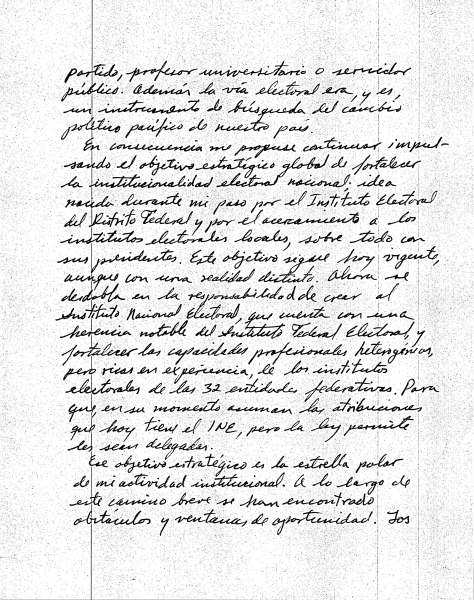 partido, profesor universitario o servidor
público. Además la vía electoral era, y es,
un instrumento de búsqueda del cambio
político pacífico de nuestro país.
En consecuencia me propuse continuar impul-
sando el objetivo estratégico global de fortalecer
la institucionalidad electoral nacional: idea
nacida durante mi paso por el Instituto Electoral
del Distrito Federal y por el acercamiento a los
institutos electorales locales, sobre todo con
sus presidentes. Este objetivo sigue hoy vigente,
aunque con una realidad distinta. Ahora se
desdobla en la responsabilidad de crear al
Instituto Nacional Electoral, que cuenta con una
herencia notable del Instituto Federal Electoral, y
fortalecer las capacidades profesionales heterogéneas,
pero ricas en experiencia, de los institutos
electorales de las 32 entidades federativas. Para
que, en su momento asuman las atribuciones
que hoy tiene el INE, pero la ley permite
les sean delegadas.
Ese objetivo estratégico es la estrella polar
de mi actividad institucional. A lo largo de
este camino breve se han encontrado
obstáculos y ventanas de oportunidad. Los